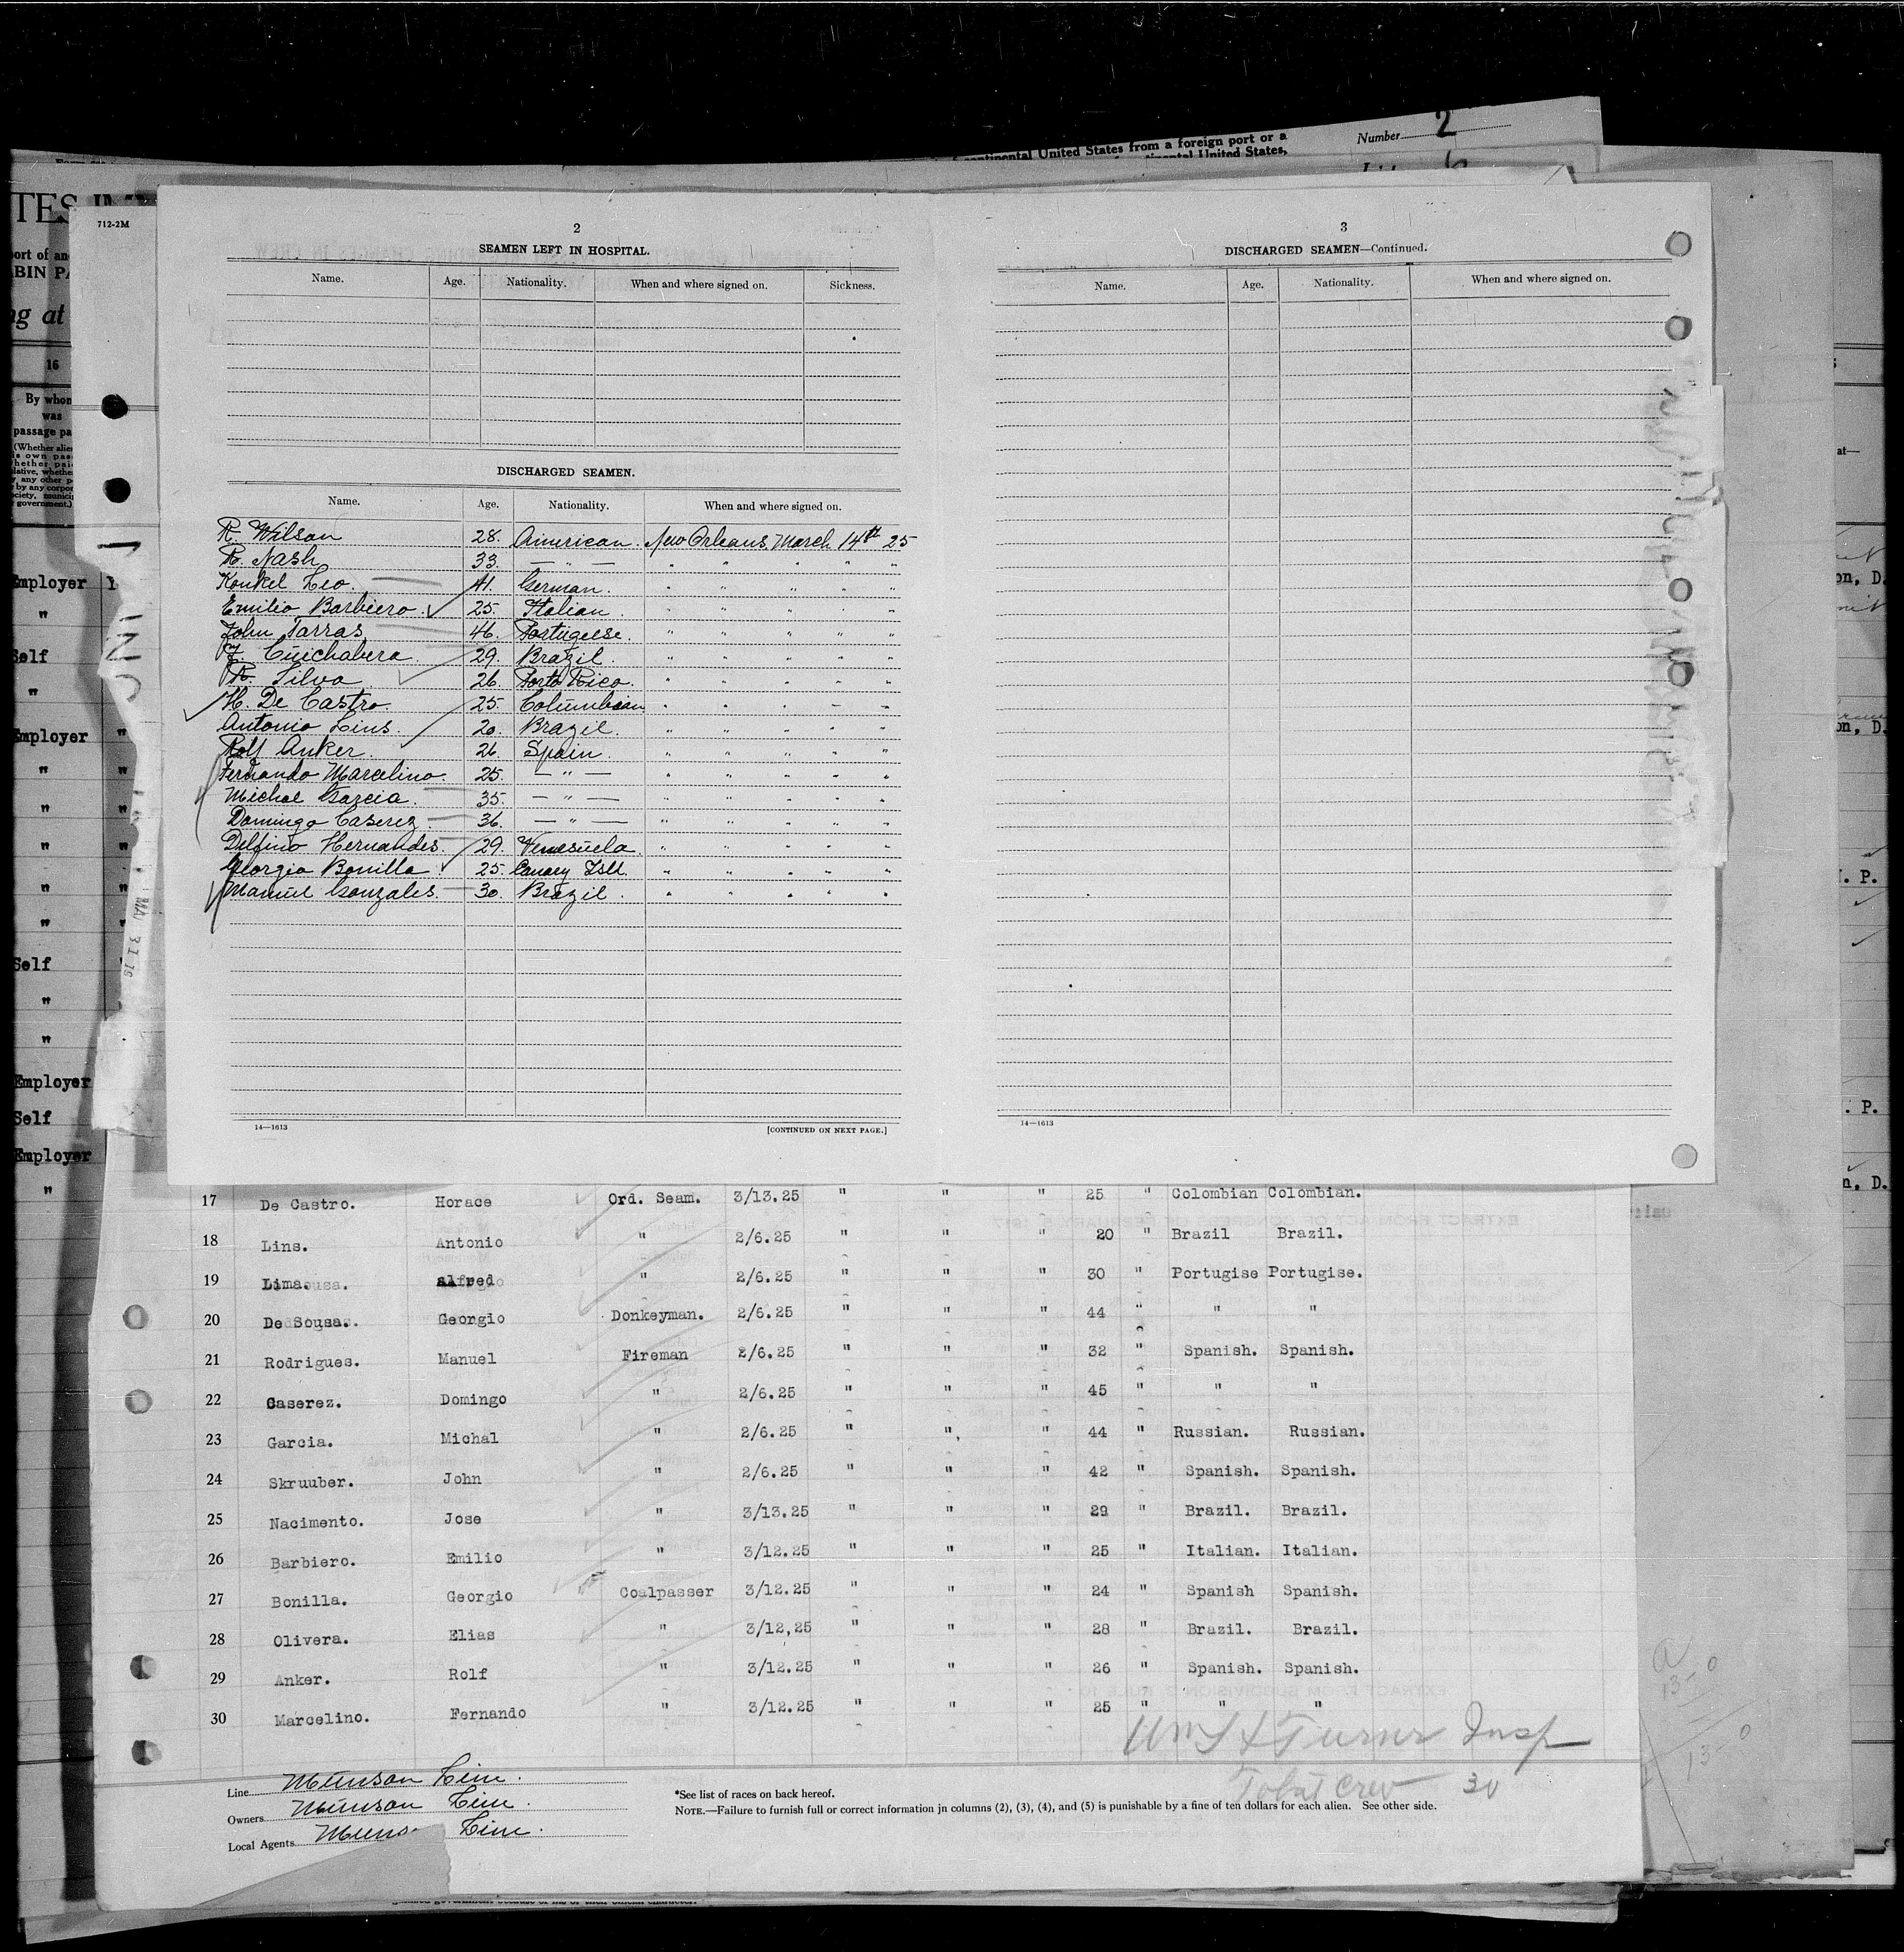 continental United States from a foreign port or a
tinental United States,
Number 2
TES
712-2M
port of an
BIN PA
ng at
16
By whom
was
passage pa
(Whether alien
is own pas
whether paid
lative, whether
y any other p
by any corpor
ciety, munici
government.)
Employer
"
Self
"
Employer
"
"
"
"
"
Self
"
"
Employer
Self
Employer
"
2
SEAMEN LEFT IN HOSPITAL.
Name. Age. Nationality. When and where signed on. Sickness.
DISCHARGED SEAMEN.
Name. Age. Nationality. When and where signed on.
R. Wilson 28. American. New Orleans, March 14th 25
R. Nash 33. — " — " " " " "
Konkel Leo. 41. German. " " " " "
Emilio Barbiero. 25. Italian. " " " " "
John Tarras 46. Portugeese. " " " " "
Cuichabera. 29. Brazil. " " " " "
R. Silva 26. Porto Rico. " " " " "
H. De Castro. 25. Columbian " " " " "
Antonio Lins. 20. Brazil. " " " " "
Rolf Anker. 26. Spain. " " " " "
Fernando Marcelino. 25. — " — " " " " "
Michal Garcia. 35. — " — " " " " "
Domingo Caserez 36. — " — " " " " "
Delfino Hernandes. 29. Venesuela. " " " " "
Georgio Bonilla 25. Canary Isld. " " " " "
Manuel Gonzales. 30. Brazil. " " " "
14—1613 [CONTINUED ON NEXT PAGE.]
3
DISCHARGED SEAMEN—Continued.
Name. Age. Nationality. When and where signed on.
14—1613
17 De Castro. Horace Ord. Seam. 3/13.25 " " " 25 " Colombian Colombian.
18 Lins. Antonio " 2/6.25 " " " 20 " Brazil Brazil.
19 Lima. alfredo " 2/6.25 " " " 30 " Portugise Portugise.
20 De Sousa. Georgio Donkeyman. 2/6.25 " " " 44 " " "
21 Rodrigues. Manuel Fireman 2/6.25 " " " 32 " Spanish. Spanish.
22 Caserez. Domingo " 2/6.25 " " " 45 " " "
23 Garcia. Michal " 2/6.25 " " " 44 " Russian. Russian.
24 Skruuber. John " 2/6.25 " " " 42 " Spanish. Spanish.
25 Nacimento. Jose " 3/13.25 " " " 29 " Brazil. Brazil.
26 Barbiero. Emilio " 3/12.25 " " " 25 " Italian. Italian.
27 Bonilla. Georgio Coalpasser 3/12.25 " " " 24 " Spanish Spanish.
28 Olivera. Elias " 3/12,25 " " " 28 " Brazil. Brazil.
29 Anker. Rolf " 3/12.25 " " " 26 " Spanish. Spanish.
30 Marcelino. Fernando " 3/12.25 " " " 25 " " "
Wm H Turner Insp
Total Crew 30
Line Munson Line.
Owners Munson Line.
Local Agents Munso Line.
*See list of races on back hereof.
NOTE.—Failure to furnish full or correct information in columns (2), (3), (4), and (5) is punishable by a fine of ten dollars for each alien. See other side.
at—
on, D.
on, D.
. P.
. P.
n, D.